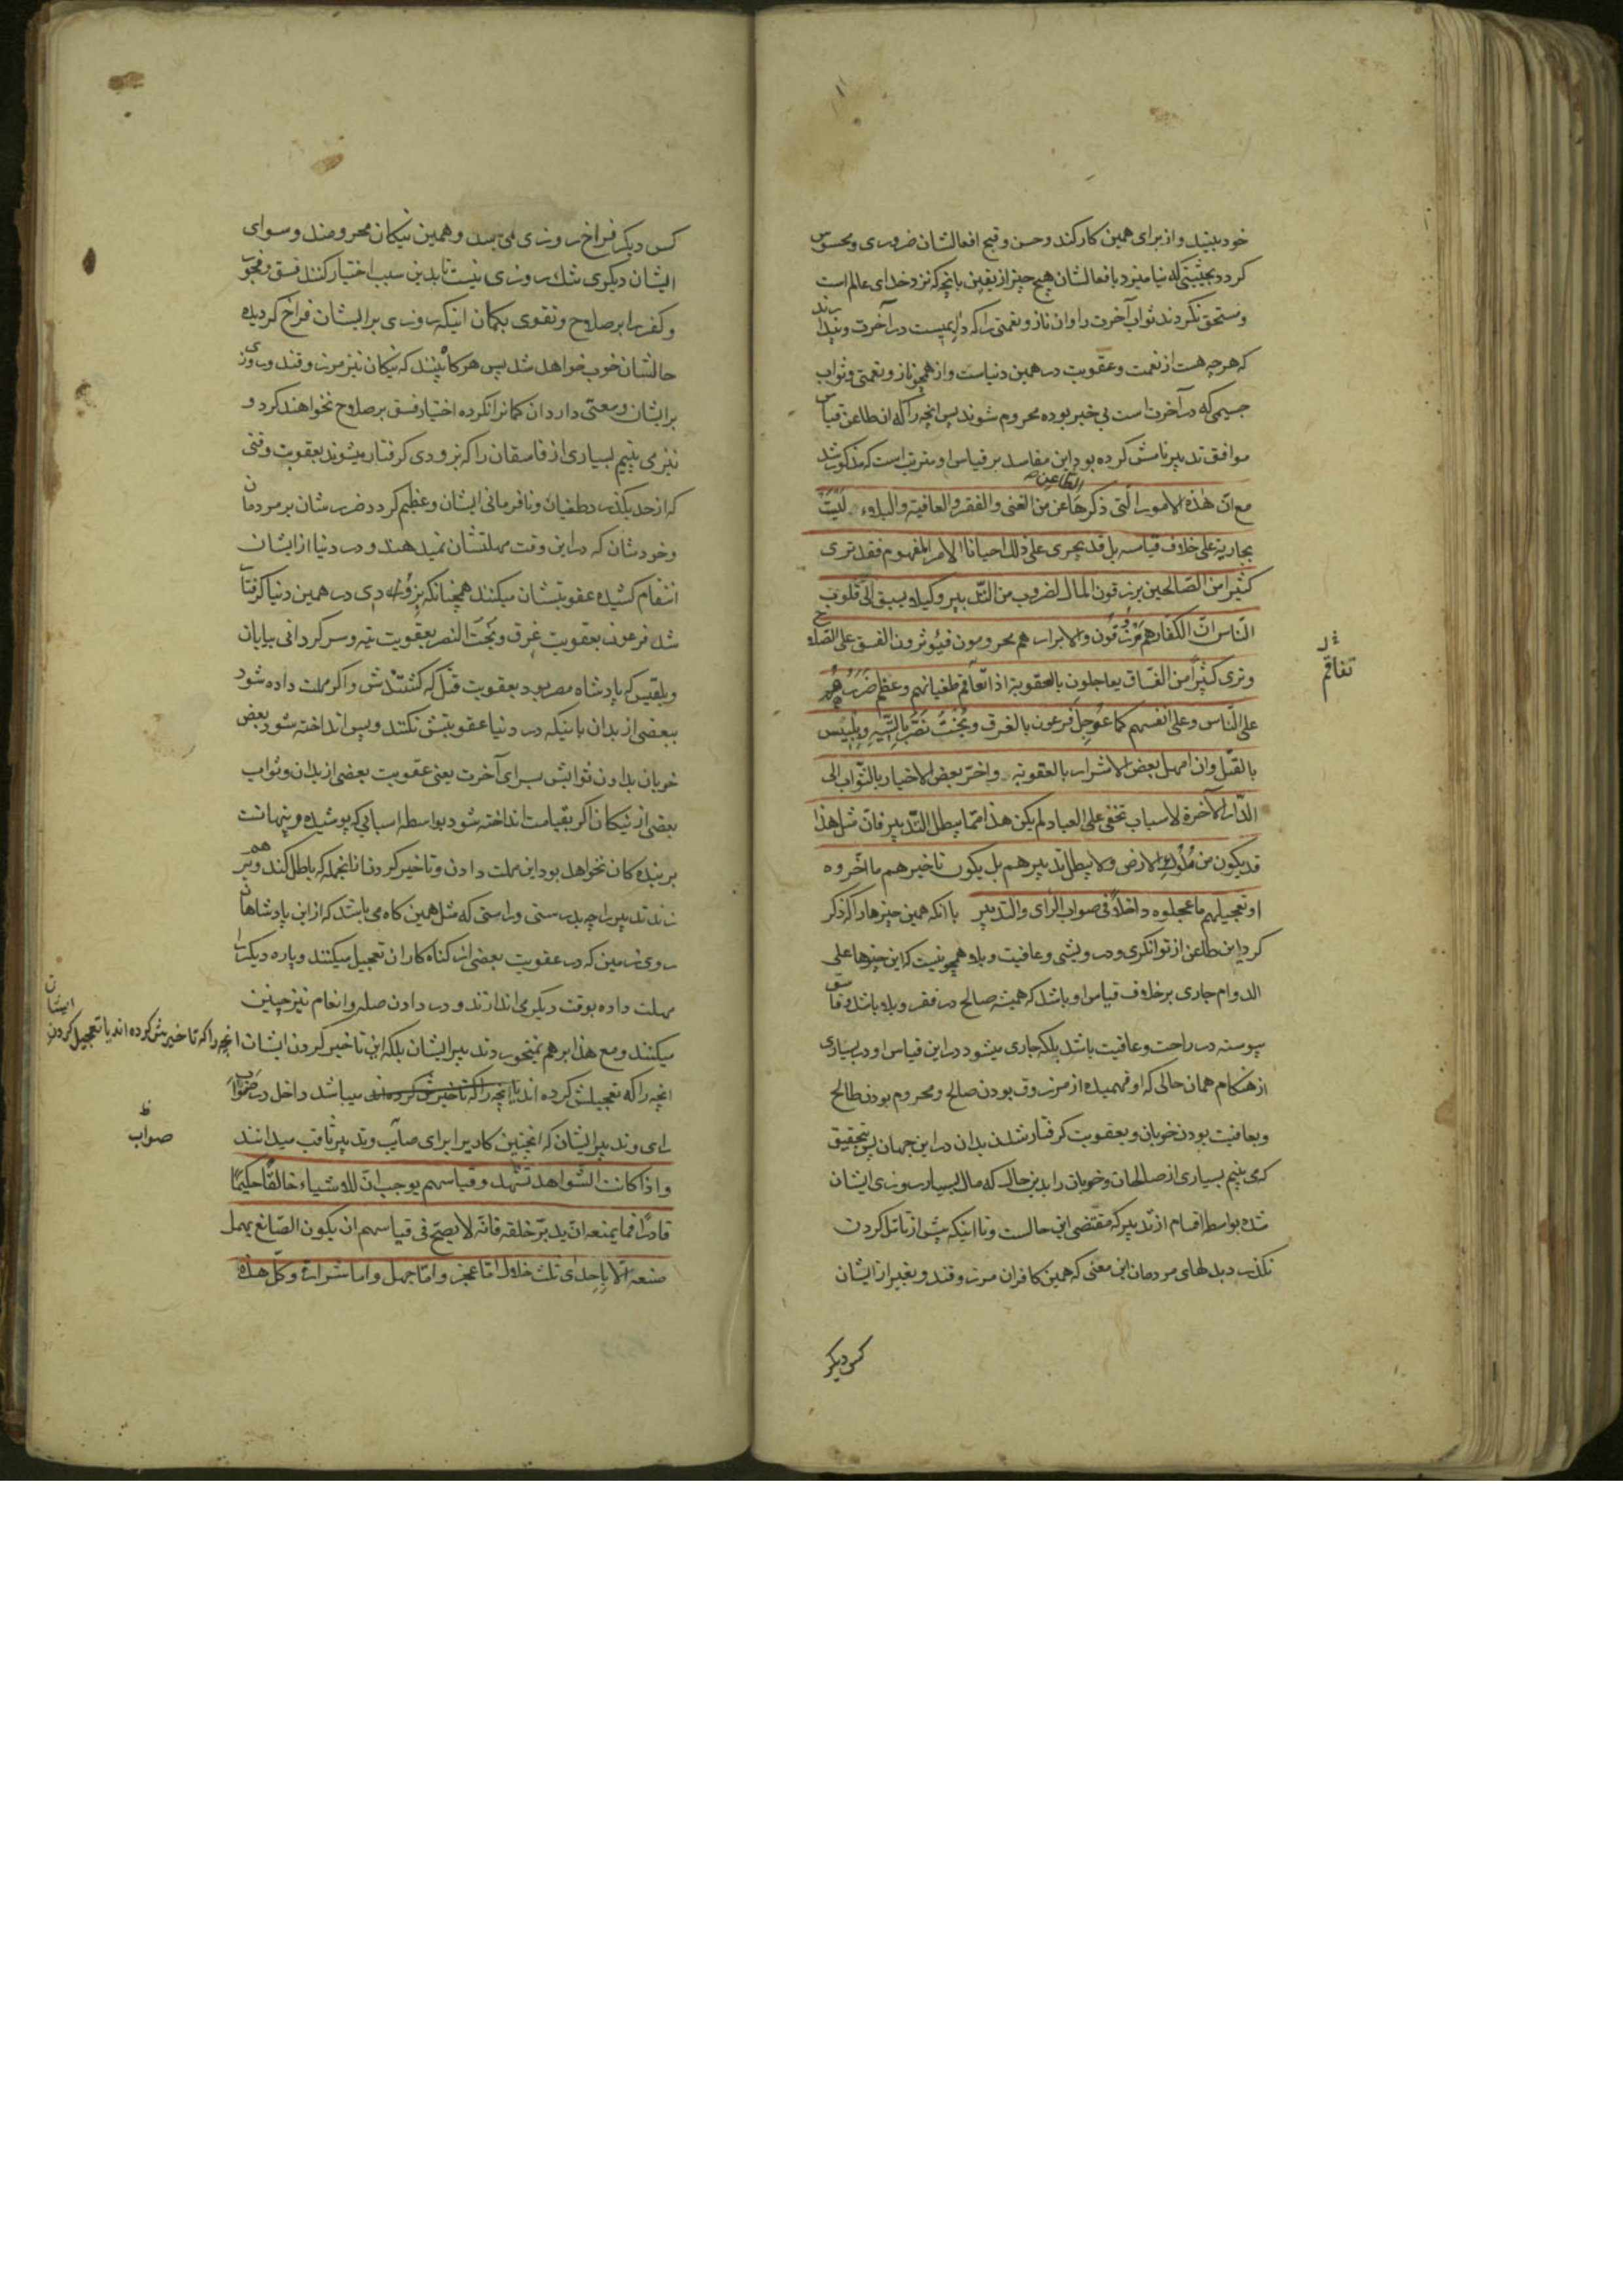 خود ببیند و از برای همین کار کند و حسن و قبح افعالشان ضروری و محسوس
کردد بحیثیتی که نیامیزد بافعالشان هیچ چیز از یقین بانچه که نزد خدای عالم است
و مستحق نکردند ثواب آخرت را و ان ناز و نعمتی را که دایمیست در آخرت و پندارند
که هر چه هست از نعمت و عقوبت در همین دنیاست و از همچو ناز و نعمتی و ثواب
جسیمی که در آخرت است بی خبر بوده محروم شوند پس انچه را که ان طاعن قیاس
موافق تدبیر نامش کرده بود این مفاسد بر قیاس او مترتب است که مذکور شد
مع ان هذه الامور التی ذکرها الطاعن من الغنی و الفقر و العافیة و البلاء لَیْسَتْ
بجاریة علی خلاف قیاسه بل قد یجری علی ذلک احیانا الامر المفهوم فقد تری
کثیرا من الصّالحین یرزقون المال لضروب من التّدبیر و کیلا یسبق الی قلوب
النّاس انّ الکفار هم مَرْزُوقُون و الابرار هم محرومون فیُؤثرون الفسق علی الصّلاح
و تری کثیرًا من الفسّاق یعاجلون بالعقوبة اذا تفاقم طغیانهم و عظم ضَرَرُهُمْ
علی النّاس و علی انفسهم کما عُوجِلَ فرعون بالغرق و بُخْتَ نَصَّرَ بِالتّیهِ و بِلْبیس
بالقتل و ان امهل بعض الاشرار بالعقوبة و اخّر بعض الاخیار بالثّواب الی
الدّار الآخرة لأسباب تخفی علی العباد لم یکن هذا ممّا یبطل التّدبیر فانّ مثل هذا
قد یکون من مُلُوک الارض و لا یبطل تدبیرهم بل یکون تاخیرهم ما اخّروه
او تعجیلهم ما عجلوه داخلاً فی صواب الرّای و التدبیر با انکه همین چیزها را که ذکر
کرد این طاعن از توانکری و درویشی و عافیت و بلا همچو نیست که این چیزها علی
الدوام جاری بر خلاف قیاس او باشد که همیشه صالح در فقر و بلا باشد و فاسق
پیوسته در راحت و عافیت باشد بلکه جاری میشود در این قیاس او در بسیاری
از هنکام همان حالی که او فهمیده از مرزوق بودن صالح و محروم بودن طالح
و بعافیت بودن خوبان و بعقوبت کرفتار شدن بدان در این جهان پس بتحقیق
که می بینیم بسیاری از صالحان و خوبان را بدین حال که مال بسیار روزی ایشان
شده بواسطه اقسام از تدبیر که مقتضی این حالست و تا اینکه پیش از تامّل کردن
نکذرد بدلهای مردمان این معنی که همین کافران مرزوقند و بغیر از ایشان
کس دیکر
ظ
تفاقم
کس دیکر فراخ روزی نمی باشد و همین نیکان محرومند و سوای
ایشان دیکری تنک روزی نیست تا بدین سبب اختیار کنند فسق و فجور
و کفر را بر صلاح و تقوی بکمان اینکه روزی بر ایشان فراخ کردیده
حالشان خوب خواهد شد پس هرکاه بینند که نیکان نیز مرزوقند و روزی
بر ایشان وسعتی دارد ان کمانرا نکرده اختیار فسق بر صلاح نخواهند کرد و
نیز می بینیم بسیاری از فاسقان را که بزودی کرفتار میشوند بعقوبت وقتی
که از حد بکذرد طغیان و نافرمانی ایشان و عظیم کردد ضررشان بر مردمان
و خودشان که در این وقت مهلتشان نمیدهند و در دنیا از ایشان
انتقام کشیده عقوبتشان میکنند همچنانکه بزودی در همین دنیا کرفتار
شد فرعون بعقوبت غرق و بُختَ النصر بعقوبت تیه و سرکردانی بیابان
و بلقیس که پادشاه مصر بود بعقوبت قتل که کشتندش و اکر مهلت داده شود
ببعضی از بدان باینکه در دنیا عقوبتش نکنند و پس انداخته شود بعض
خوبان بدادن ثوابش بسرای آخرت یعنی عقوبت بعضی از بدان و ثواب
بعضی از نیکان اکر بقیامت انداخته شود بواسطه اسبابی که پوشیده و پنهانست
بر بنده کان نخواهد بود این مهلت دادن و تاخیر کردن از انجمله که باطل کند و بر هم
زند تدبیر را چه بدرستی و راستی که مثل همین کاه می باشد که از این پادشاهان
روی زمین که در عقوبت بعضی از کناه کاران تعجیل میکنند و پاره دیکر را
مهلت داده بوقت دیکر می اندازند و در دادن صله و انعام نیز چنین
میکنند و مع هذا بر هم نمیخورد تدبیر ایشان بلکه این تاخیر کردن ایشان انچه را که تاخیرش کرده اند یا تعجیل کردن ایشان
انچه را که تعجیلش کرده اند تا انچه را که تاخیرش کرده اند میباشد داخل در صواب
رای و تدبیر ایشان که انچنین کار را برای صایب و تدبیر ثاقب میدانند
و اذا کانت الشّواهد تشهد و قیاسهم یوجب انّ للاشیاء خالقًا حکیمًا
قادرًا فما یمنعه ان یدبّر خلقه فانّه لا یصحّ فی قیاسهم ان یکون الصّانع یهمل
صنعه الّا باحدی ثلث خلال امّا عجز و امّا جهل و اما شرارة و کلّ هذه
ظ
صواب